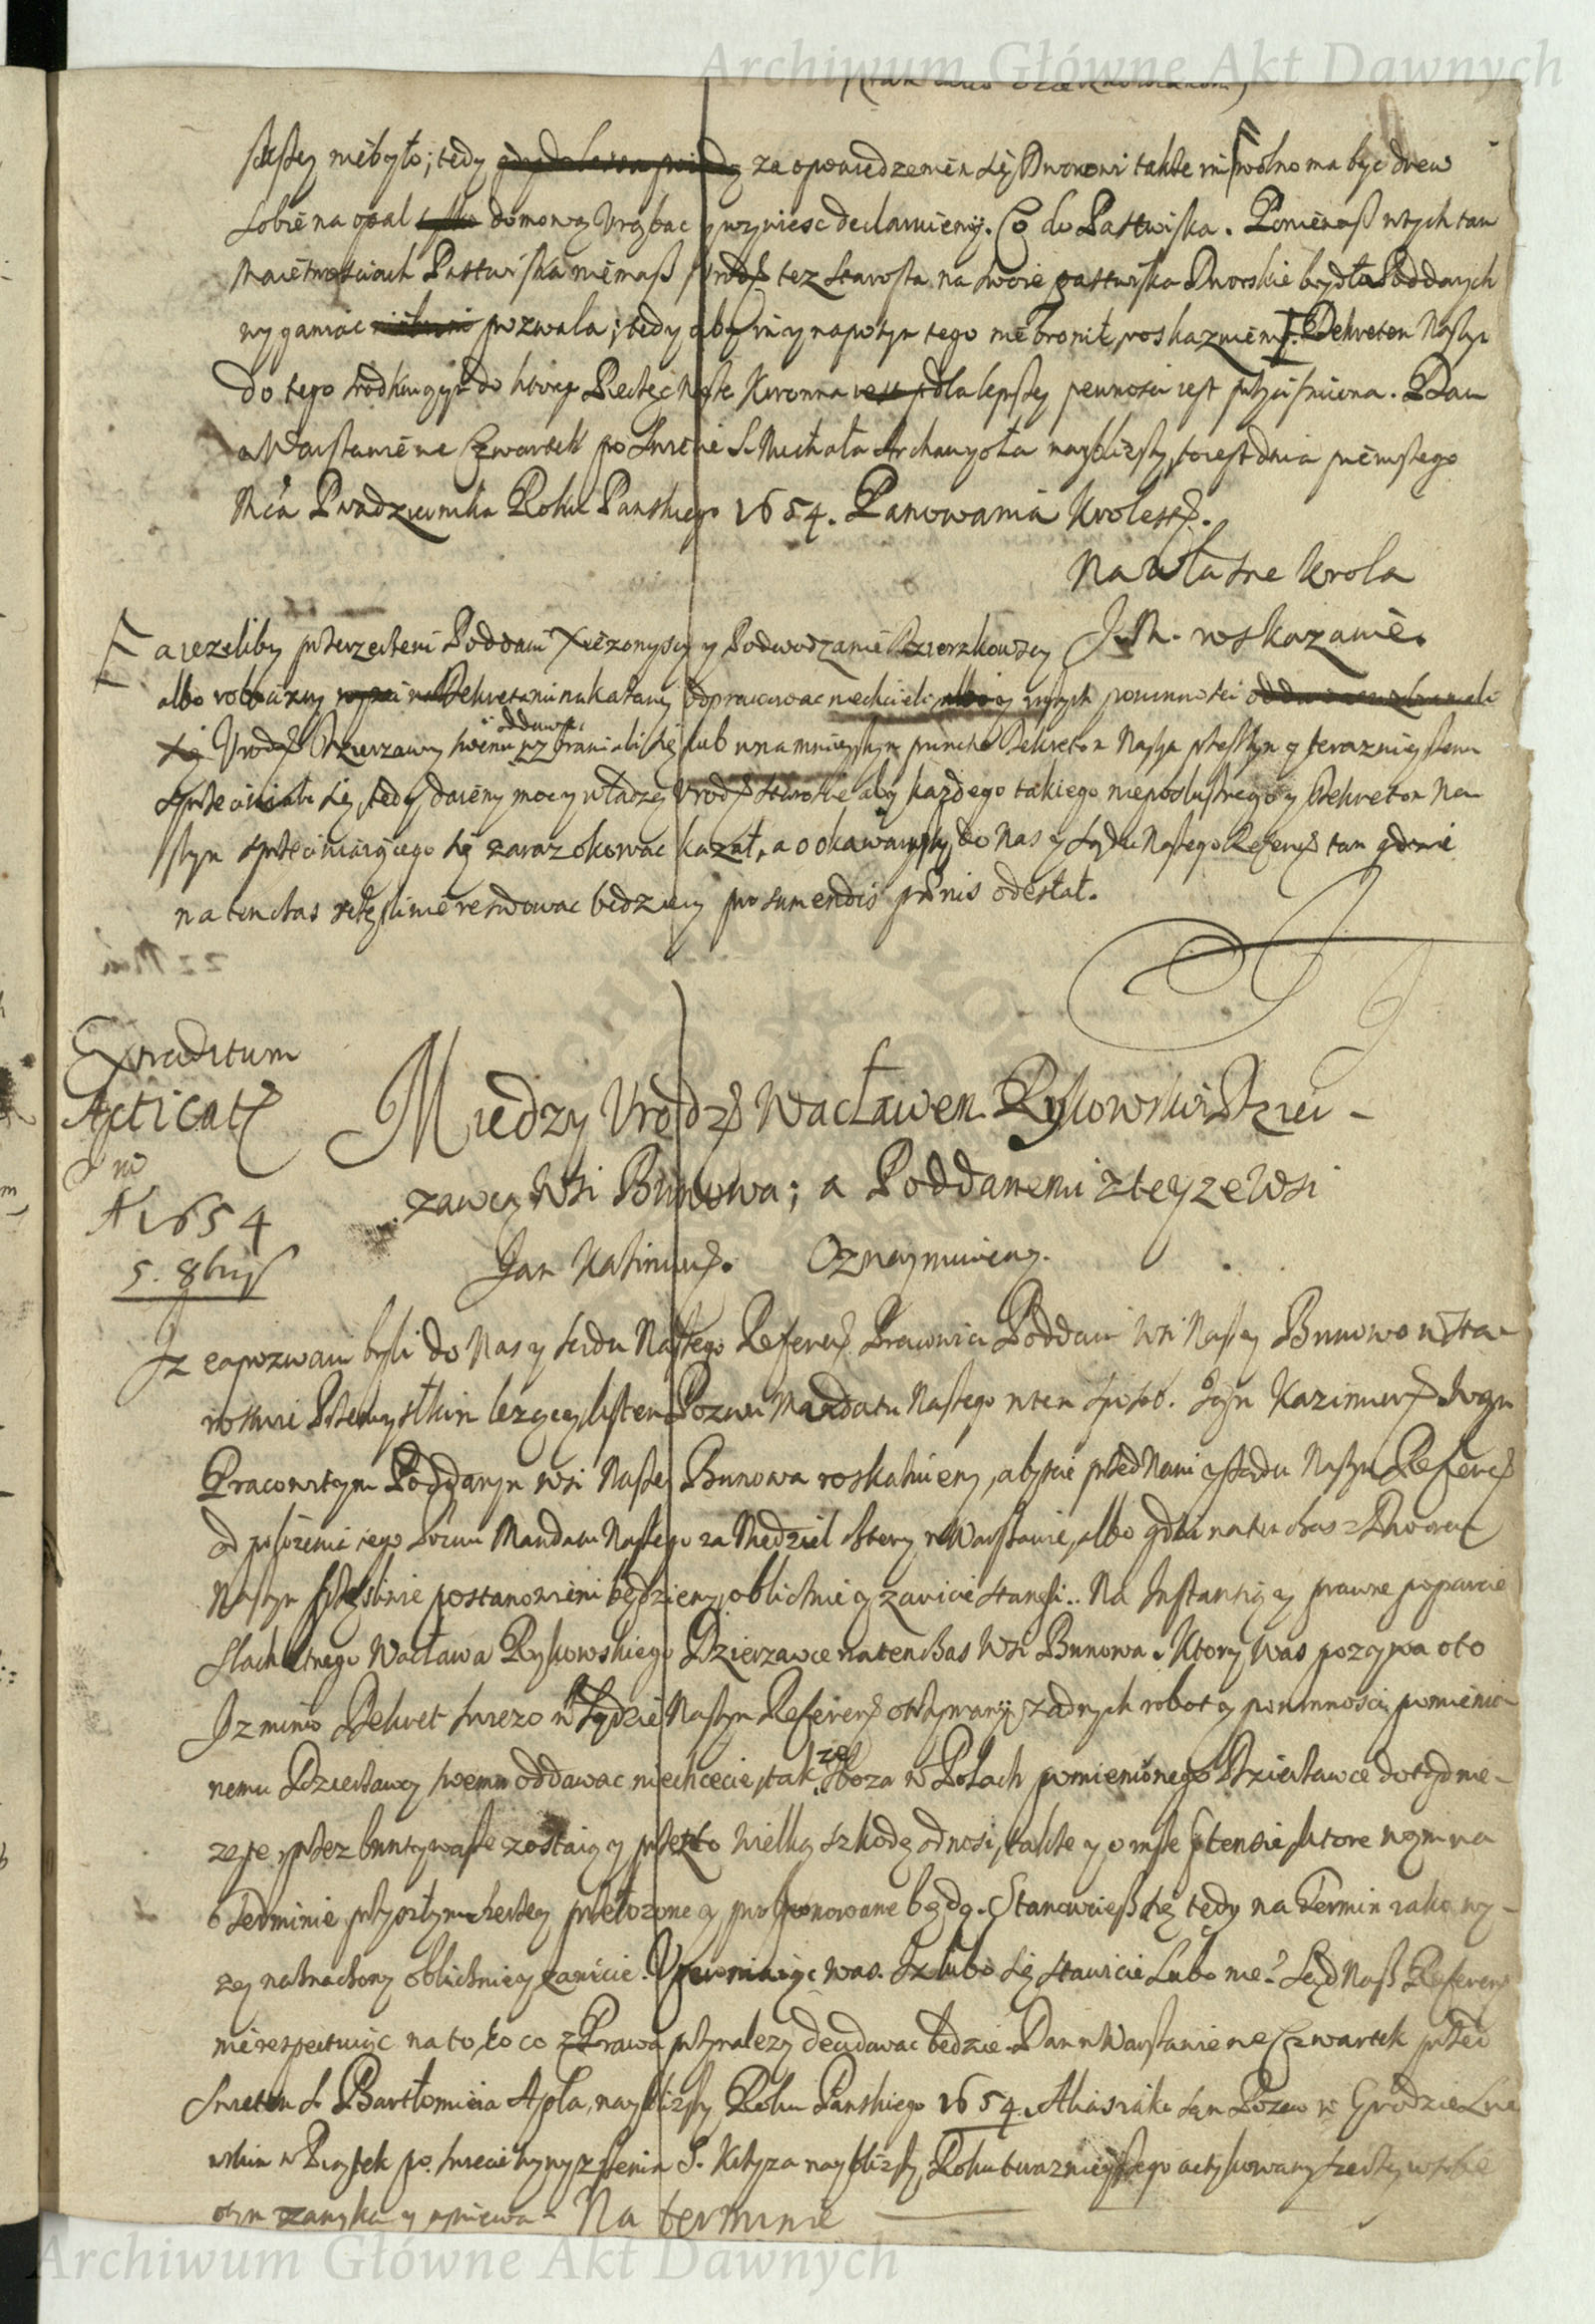 Archiwum Główne Akt Dawnych
szkody niebyło; tedy za opowiedzeniem się Dworowi także im wolno ma być drew
sobie na opał domowy urąbac y wyniesc declaruiemy. Co do Pastwiska. Ponieważ w tych tam
Maiętnościach Pastwiska niemasz Urodz tez Starosta na swoie pastwiska Dworskie bydła Poddanych
wyganiac pozwala; tedy aby im y napotym tego nie bronił, roskazuiemy. Dekretem Naszym
do tego srodkuiącym do ktorego Pieczęć Nasza Koronna dla lepszey pewności iest przyciśniona. Dan
w Warszawie we Czwartek po Swięcie S. Michała Archanyoła nayblizszy, to iest dnia pierwszego
Mca Pazdziernika Roku Panskiego 1654. Panowania Krolestw.
Na własne Krola
J. M. roskazanie.
a iezeliby przerzeczeni Poddani y Podwodzanie
albo robocizny Dekretem nakazaney odprawowac niechcieli y inszych powinności
Urodz Dzierzawcy swemu oddawac wzbraniali się, lub w namnieyszym punkcie Dekretom Naszym przeszłym y teraznieyszemu
sprzeciwiali się, tedy daiemy moc y władzą Urodz Staroscie, aby kazdego takiego nieposłusznego y Dekretom Na
szym sprzeciwiaiącego się zaraz okowac kazał, a okowawszy, do Nas y Sądu Naszego Referend tam gdzie
na tenczas szczęśliwie residowac będziemy pro sumendis pœnis odesłał.
Extraditum
Acticat
1654
5. 8bris
Miedzy Urodz Wacławem Rykowski Dzier-
zawcą Wsi Bunowa; a Poddanemi z teyze Wsi
Jan Kazimierz. Oznaymuiemy.
Iz zapozwani byli do Nas y Sądu Naszego Referend Pracowici Poddani Wsi Naszey Bunowo w Sta-
rostwie Przemyskim lezącey, listem Pozwu Mandatu Naszego w ten sposob. Jan Kazimierz Wam
Pracowitym Poddanym wsi Naszey Bunowa roskazuiemy, abyscie przed Nami y Sądem Naszym Referend
od połozenia tego Pozwu Mandatu Naszego za Niedziel cztery w Warszawie, albo gdzie na tenczas z Dworem
Naszym szczęśliwie postanowieni będziemy, oblicznie y zawicie stanęli. Na Instantią y prawne poparcie
Slachetnego Wacława Rykowskiego Dzierzawce na tenczas Wsi Bunowa. Ktory Was pozywa oto
Iz mimo Dekret swiezo w Sądzie Naszym Referend otrzymany, zadnych robot y powinności pomienio
nemu Dzierzawcy swemu oddawac niechcecie, tak ze Zboza w Polach pomienionego Dzierzawce dotąd nie-
zęte, przez bunty wasze zostaią y przez to wielką szkodę odnosi, także y o insze ptensie, ktore wam na
Terminie przyszłym szerzey przełozone y proponowane będą. Stanowcież się tedy na Termin iako wy-
zey naznaczony oblicznie y zawicie. Upewniaiąc was. Iz lubo się stawicie Lubo nie? Sąd Nasz Referend
nierespectuiąc na to, to co z Prawa przynalezy decidowac będzie. Dan w Warszawie we Czwartek przed
Swietem S. Bartłomieia Apła, nayblizszy Roku Panskiego 1654. A iako ten Pozew w Grodzie
w Piątek po swiecie S. Krzyza nayblizszy, Roku teraznieyszego actykowany szerzey w sobie
to zamyka y opiewa. Na terminie
Archiwum Główne Akt Dawnych